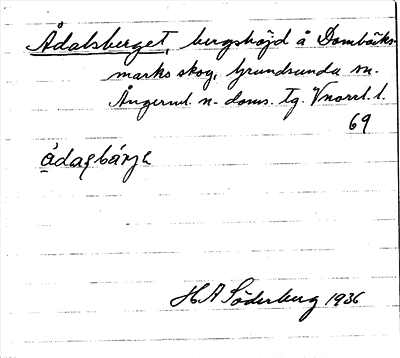 Ådalsberget, bergshöjd å Dombäcks-
marks skog, Grundsunda sn.
Ångerml. n. doms. tg. Vnorrl. l.
69
HA Söderberg 1936